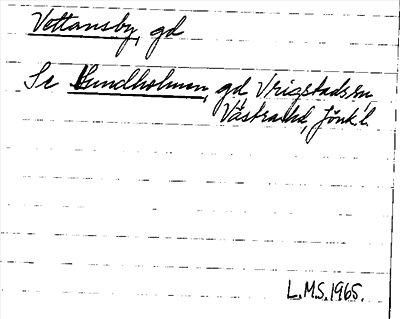 Vettansby, gd
Se Sundholmen, gd Vrigstads sn
Västra hd, Jönk. l.
L.M.S. 1965.